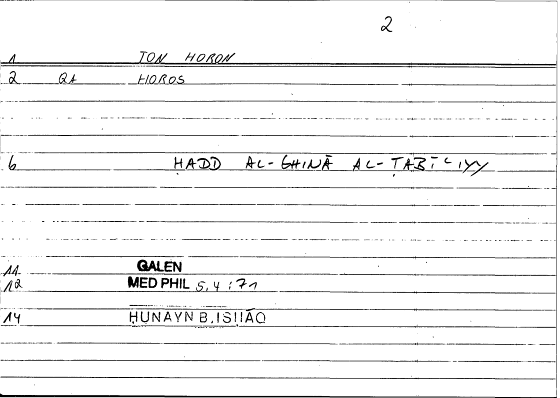 2
1 TON HORON
2 QA HOROS
6 ḤADD AL-GHINĀ AL-ṬABĪʿIYY
11 GALEN
12 MED PHIL 5,4 : 71
14 HUNAYN B. ISḤĀQ